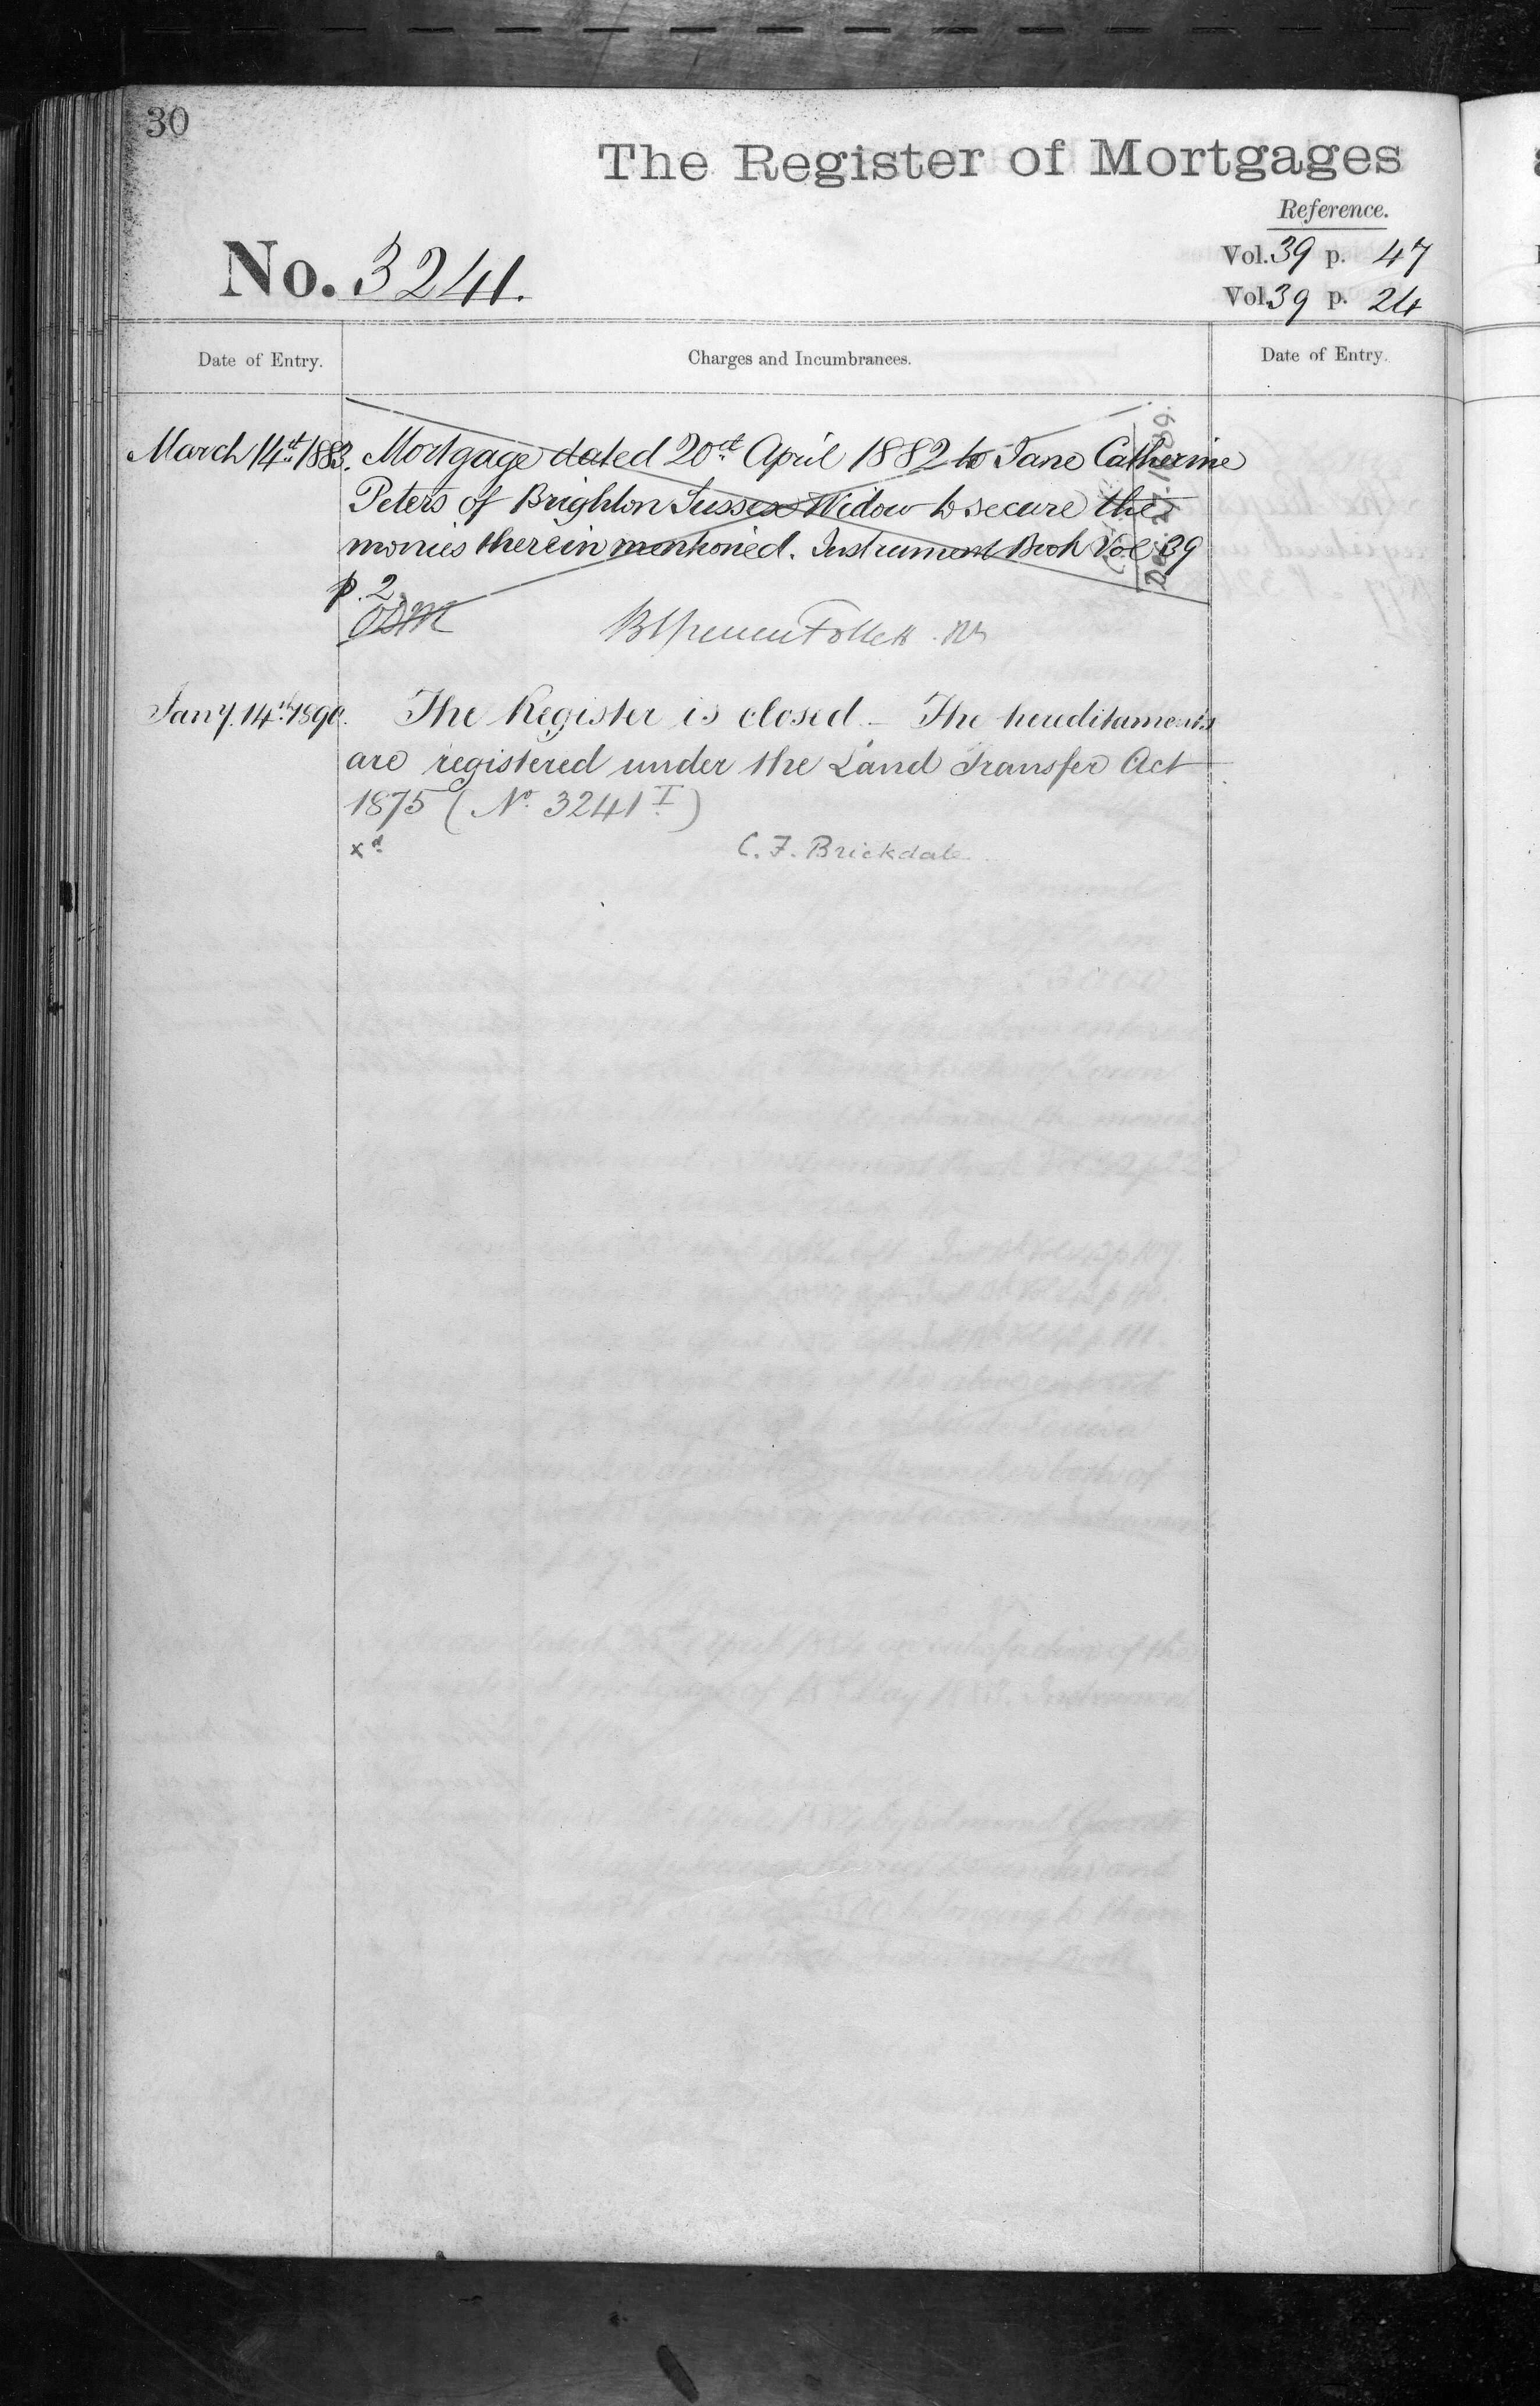 30
The Register of Mortgages
Reference.
No. 3241.
Vol. 39 p. 47
Vol. 39 p. 24
Date of Entry.
Charges and Incumbrances.
Date of Entry.
March 14th 1883. Mortgage dated 20th April 1882 to Jane Catherine
Peters of Brighton Sussex Widow to secure the
monies therein mentioned. Instrument Book Vol 39
p. 2.
Jany. 14th 1890. The Register is closed — The hereditaments
are registered under the Land Transfer Act
1875 (No. 3241 I)
xd
C. F. Brickdale